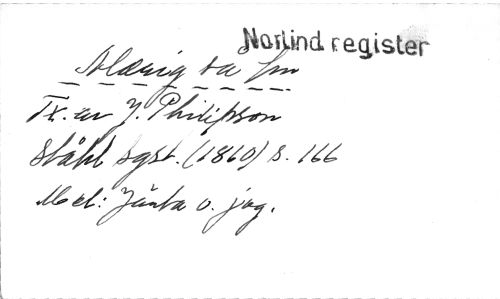 Norlind register
Aldrig sa han
Tx. av J. Philipson
Ståhl sgst. (1860) s. 166
Mel: Jänta o. jag.